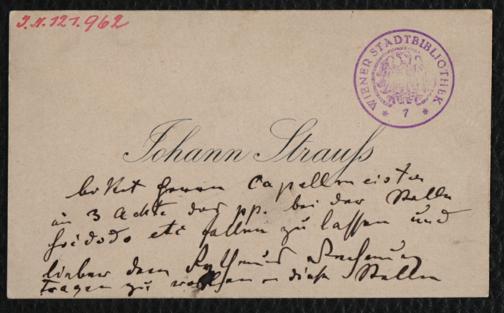 J.N. 121.962
WIENER STADTBIBLIOTHEK
* 7 *
Johann Strauß
bittet Herrn Capellmeister
im 3 Akte das pp. bei der Stelle
etc fallen zu lassen und
lieber dem Rechnung
tragen zu wollen – diese Stelle